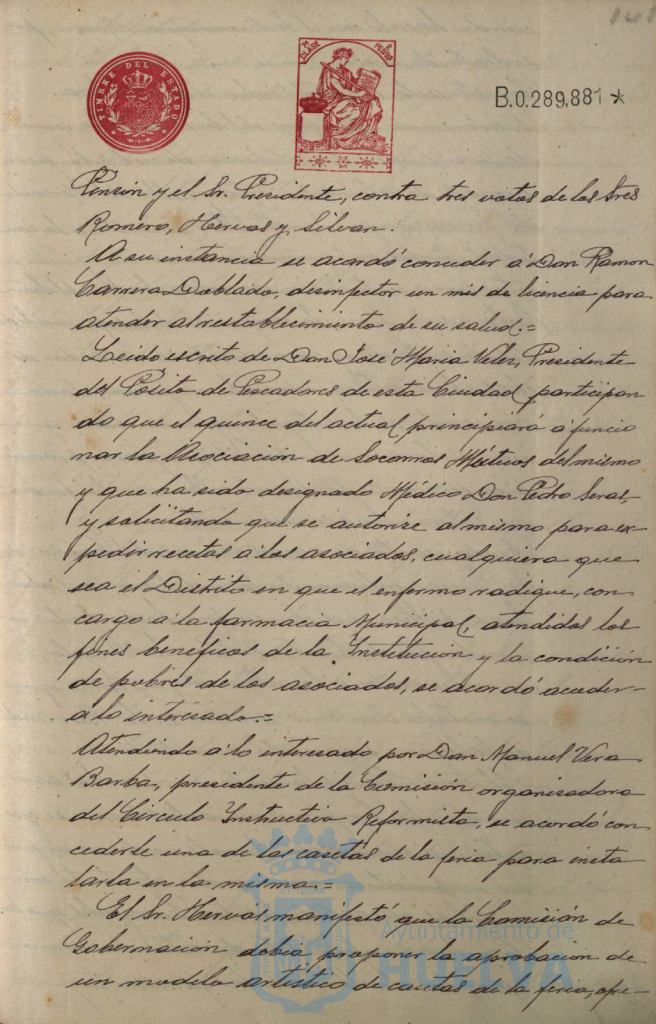 141
TIMBRE DEL ESTADO
7ª CLASE
2 PESETAS
B.0.289,881 *
Pinzón y el Sr. Presidente, contra tres votos de los Sres
Romero, Hervas y Silvan.
A su instancia se acordó conceder á Don Ramon
Carrera Doblado, desinfector un mes de licencia para
atender al restablecimiento de su salud.=
Leido escrito de Don José Maria Velez, Presidente
del Pósito de Pescadores de esta Ciudad participan
do que el quince del actual principiará á funcio
nar la Asociación de Socorros Mútuos del mismo
y que ha sido designado Médico Don Pedro Seras,
y solicitando que se autorize al mismo para ex
pedir recetas á los asociados, cualquiera que
sea el Distrito en que el enfermo radique, con
cargo á la farmacia Municipal, atendidos los
fines beneficos de la Institución y la condición
de pobres de los asociados, se acordó acceder
a lo interesado.=
Atendiendo á lo interesado por Don Manuel Vera
Barba, presidente de la Comisión organizadora
del Circulo Instructivo Reformista, se acordó con
cederle una de las casetas de la feria para insta
larla en la misma.=
El Sr. Hervás manifestó que la Comisión de
Gobernación debia proponer la aprobación de
un modelo artistico de casetas de la feria, ofre-
Ayuntamiento de
HUELVA